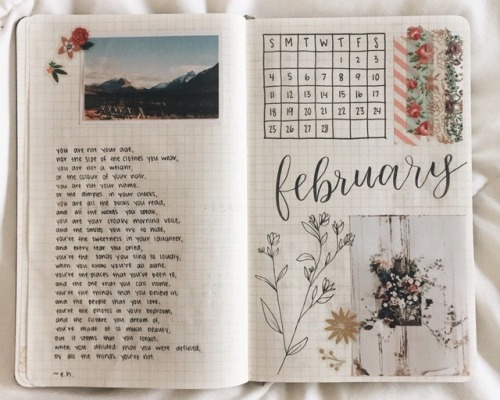 you are not your age,
nor the size of the clothes you wear,
you are not a weight,
or the colour of your hair.
you are not your name,
or the dimples in your cheeks,
you are all the books you read,
and all the words you speak,
you are your croaky morning voice,
and the smiles you try to hide,
you're the sweetness in your laughter,
and every tear you cried,
you're the songs you sing so loudly,
when you know you're all alone,
you're the places that you've been to,
and the one that you call home,
you're the things that you believe in,
and the people that you love,
you're the photos in your bedroom,
and the future you dream of,
you're made of so much beauty,
but it seems that you forgot,
when you decided that you were defined,
by all the things you're not.
~e.h.
S M T W T F S
1 2 3
4 5 6 7 8 9 10
11 12 13 14 15 16 17
18 19 20 21 22 23 24
25 26 27 28
february